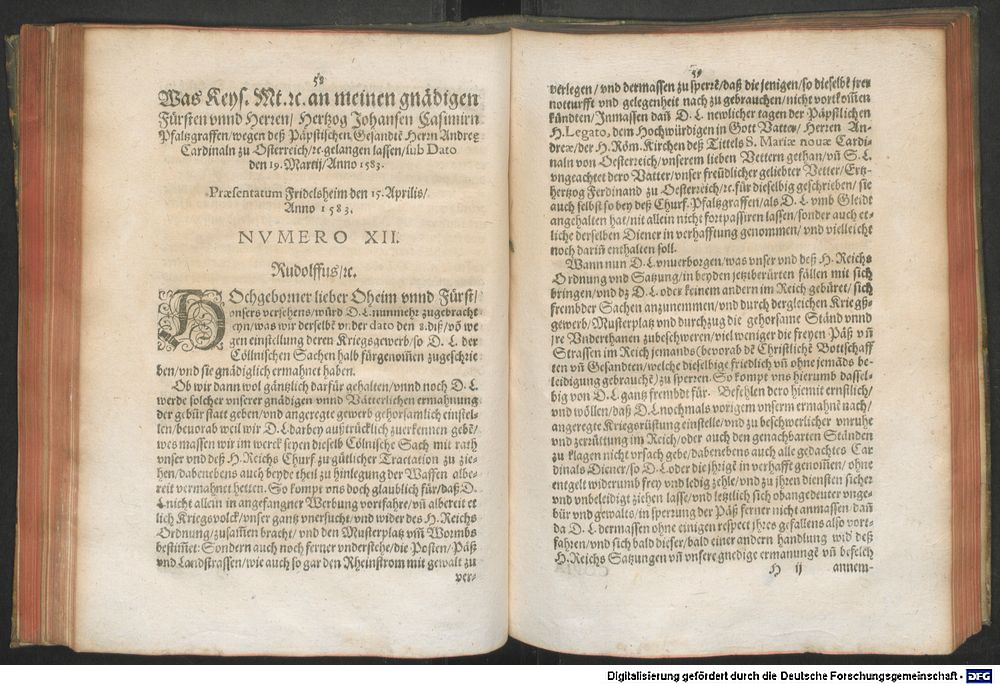 58
Was Keys. Mt. ꝛc. an meinen gnädigen
Fürsten vnnd Herren/ Hertzog Johansen Casimirn
Pfaltzgraffen/wegen deß Päpstischen Gesandtẽ Herrn Andreę
Cardinaln zu Osterreich/ꝛc. gelangen lassen/sub Dato
den 19. Martij/Anno 1583.
Præsentatum Fridelsheim den 15. Aprilis/
Anno 1583.
NVMERO XII.
Rudolffus/ꝛc.
HOchgeborner lieber Oheim vnnd Fürst/
vnsers versehens/würd D. L. nunmehr zugebracht
seyn/was wir derselbẽ vnder dato den 8. diß/võ we
gen einstellung deren Kriegsgewerb/so D. L. der
Cöllnischen Sachen halb fürgenom̃en zugeschrie
ben/vnd sie gnädiglich ermahnet haben.
Ob wir dann wol gäntzlich darfür gehalten/vnnd noch D. L.
werde solcher vnserer gnädigen vnnd Vätterlichen ermahnung
der gebür statt geben/vnd angeregte gewerb gehorsamlich einstel-
len/bevorab weil wir D. L. darbey außtrücklich zuerkennen gebẽ/
wes massen wir im werck seyen dieselb Cölnische Sach mit rath
vnser vnd deß H. Reichs Churf. zu gütlicher Tractation zu zie-
hen/dabenebens auch beyde theil zu hinlegung der Waffen albe-
reit vermahnet hetten. So kompt vns doch glaublich für/daß D.
L. nicht allein in angefangner Werbung vortfahre/vñ albereit et
lich Kriegsvolck/vnser gantz vnersucht/vnd wider des H. Reichs
Ordnung/zusam̃en bracht/vnd den Musterplatz vm̃ Wormbs
bestim̃et: Sondern auch noch ferner vnderstehe/die Posten/Päß
vnd Landstrassen/wie auch so gar den Rheinstrom mit gewalt zu
ver-
59
verlegen/vnd dermassen zu sperrẽ/daß die jenigen/so dieselbẽ jrer
notturfft vnd gelegenheit nach zu gebrauchen/nicht vortkom̃en
kündten/Inmassen dañ D. L. newlicher tagen der Päpstlichen
H. Legato, dem Hochwürdigen in Gott Vatter/ Herren An-
dreæ/der H. Röm. Kirchen deß Tittels S. Mariæ nouæ Cardi-
naln von Oesterreich/vnserem lieben Vettern gethan/vñ S. L.
vngeachtet dero Vatter/vnser freüdlicher geliebter Vetter/Ertz-
hertzog Ferdinand zu Oesterreich/ꝛc. für dieselbig geschrieben/ sie
auch selbst so bey deß Churf. Pfaltzgraffen/als D. L. vmb Gleidt
angehalten hat/nit allein nicht fortpassiren lassen/sonder auch et-
liche derselben Diener in verhafftung genommen/ vnd vielleicht
noch dariñ enthalten soll.
Wann nun D. L. vnuerborgen/was vnser vnd deß H. Reichs
Ordnung vnd Satzung/in beyden jetztberürten fällen mit sich
bringen/vnd dz D. L. oder keinem andern im Reich gebüret/sich
frembder Sachen anzunemmen/vnd durch dergleichen Kriegß-
gewerb/Musterplatz vnd durchzug die gehorsame Ständ vnnd
jre Vnderthanen zubeschweren/viel weniger die freyen Päß vñ
Strassen im Reich jemands (bevorab dẽ Christlichẽ Bottschaff
ten vñ Gesandten/welche dieselbige friedlich vñ ohne jemãds be-
leidigung gebrauchẽ) zu sperren. So kompt vns hierumb dassel-
big von D. L. gantz frembdt für. Befehlen dero hiemit ernstlich/
vnd wöllen/daß D. L. nochmals vorigem vnserm ermahnẽ nach/
angeregte Kriegsrüstung einstelle/vnd zu beschwerlicher vnruhe
vnd zerrüttung im Reich/oder auch den genachbarten Ständen
zu klagen nicht vrsach gebe/dabenebens auch alle gedachtes Car
dinals Diener/so D. L. oder die jhrigẽ in verhafft genom̃en/ ohne
entgelt widerumb frey vnd ledig zehle/vnd zu jhren diensten sicher
vnd vnbeleidigt ziehen lasse/vnd letztlich sich obangedeuter vnge-
bür vnd gewalts/in sperrung der Päß ferner nicht anmassen/dañ
da D. L. dermassen ohne einigen respect jhres gefallens also vort-
fahren/vnd sich bald dieser/bald einer andern handlung wid̕ deß
H. Reichs Satzungen vñ vnsere gnedige ermanungẽ vñ befelch
H ij annem-
Digitalisierung gefördert durch die Deutsche Forschungsgemeinschaft - DFG